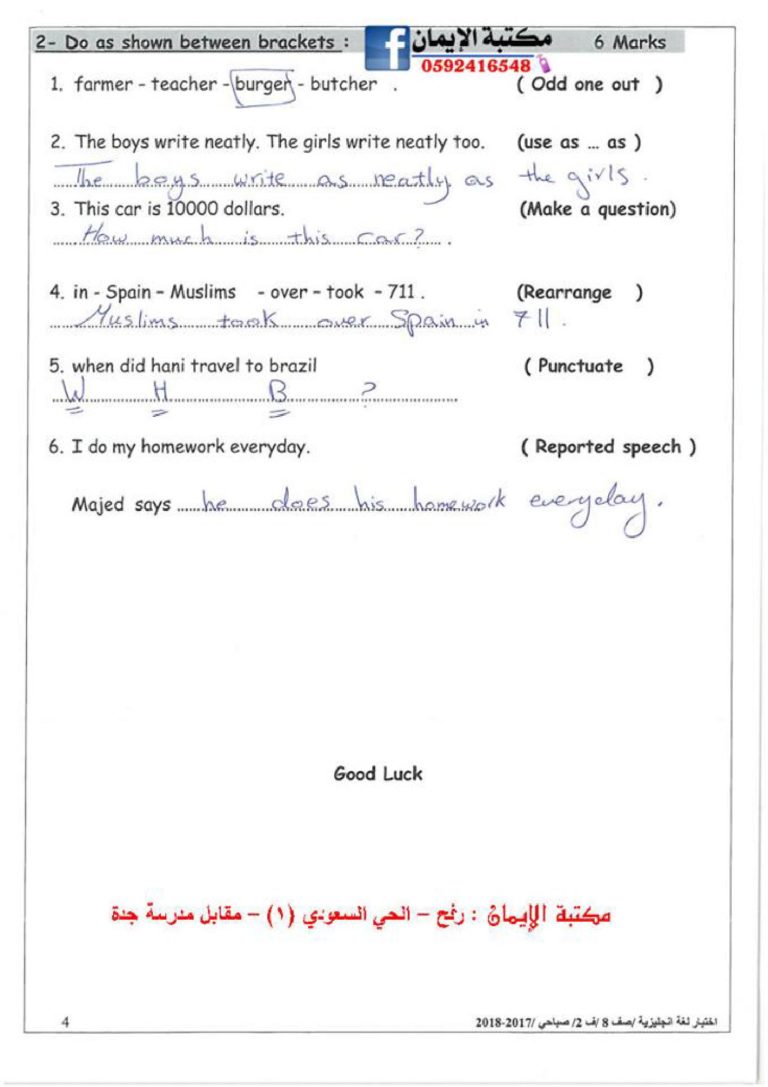 2- Do as shown between brackets : f مكتبة الإيمان 6 Marks
0592416548
1. farmer - teacher - burger - butcher . ( Odd one out )
2. The boys write neatly. The girls write neatly too. (use as ... as )
The boys write as neatly as the girls.
3. This car is 10000 dollars. (Make a question)
How much is this car? .
4. in - Spain - Muslims - over - took - 711 . (Rearrange )
Muslims took over Spain in 711.
5. when did hani travel to brazil ( Punctuate )
W H B ?
6. I do my homework everyday. ( Reported speech )
Majed says he does his homework everyday.
Good Luck
مكتبة الإيمان : رفح - الحي السعودي (١) - مقابل مدرسة جدة
4 اختبار لغة انجليزية /صف 8 /ف 2/ صباحي /2017-2018